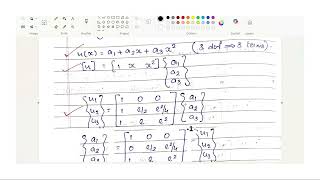 u(x) = a₁ + a₂x + a₃x² (3 dof ⇒ 3 terms)
[u] = [1 x x²] {a₁ a₂ a₃}
{u₁ u₂ u₃} = [1 0 0 / 1 l/2 l²/4 / 1 l l²] {a₁ a₂ a₃}
{a₁ a₂ a₃} = [1 0 0 / 0 l/2 l²/4 / 1 l l²]⁻¹ {u₁ u₂ u₃}